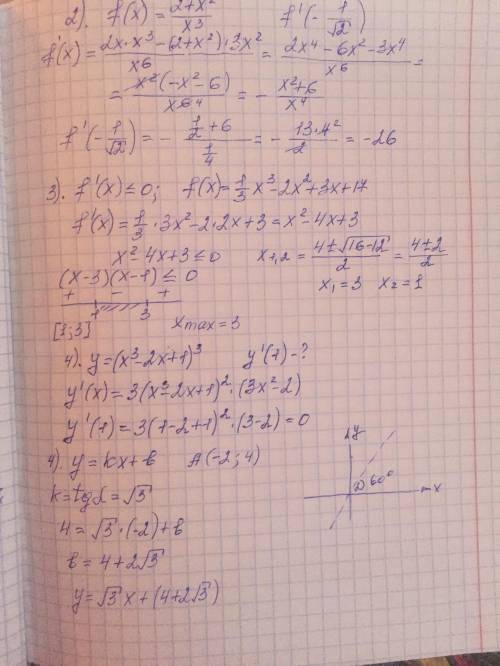 2). f(x) = (2+x²)/x³ f'(-1/√2)
f'(x) = (2x·x³-(2+x²)·3x²)/x⁶ = (2x⁴-6x²-3x⁴)/x⁶ =
= x²(-x²-6)/x⁶ ⁴ = - (x²+6)/x⁴
f'(-1/√2) = - (1/2+6)/(1/4) = - 13·4²/2 = -26
3). f'(x) ≤ 0; f(x) = 1/3 x³-2x²+3x+17
f'(x) = 1/3·3x²-2·2x+3 = x²-4x+3
x²-4x+3 ≤ 0 x₁,₂ = (4±√16-12)/2 = (4±2)/2
(x-3)(x-1) ≤ 0 x₁=3 x₂=1
+ - +
1 3
[1;3] xmax = 3
4). y=(x³-2x+1)³ y'(1)-?
y'(x) = 3(x³-2x+1)²·(3x²-2)
y'(1) = 3(1-2+1)²·(3-2) = 0
4). y=kx+b A(-2;4)
k=tgα=√3
4=√3·(-2)+b
b=4+2√3
y=√3x+(4+2√3)
y
60°
x